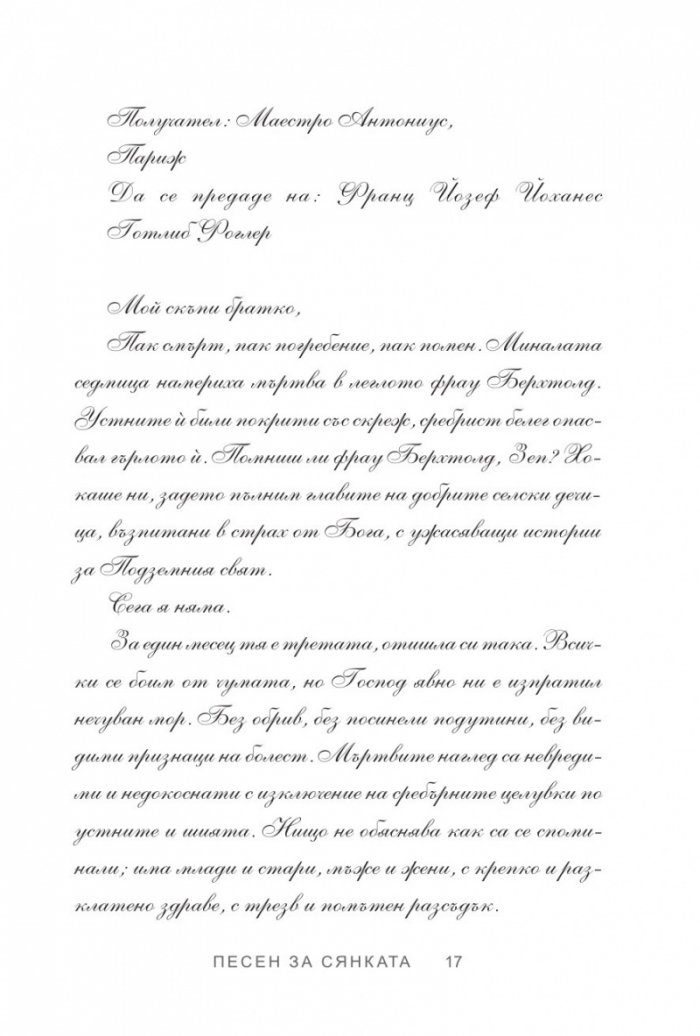 Получател: Маестро Антониус,
Париж
Да се предаде на: Франц Йозеф Йоханес
Готлиб Фоглер
Мой скъпи братко,
Пак смърт, пак погребение, пак помен. Миналата
седмица намериха мъртва в леглото фрау Берхтолд.
Устните ѝ били покрити със скреж, сребрист белег опас-
вал гърлото ѝ. Помниш ли фрау Берхтолд, Зеп? Хо-
каше ни, задето пълним главите на добрите селски дечи-
ца, възпитани в страх от Бога, с ужасяващи истории
за Подземния свят.
Сега я няма.
За един месец тя е третата, отишла си така. Всич-
ки се боим от чумата, но Господ явно ни е изпратил
нечуван мор. Без обрив, без посинели подутини, без ви-
дими признаци на болест. Мъртвите наглед са невреди-
ми и недокоснати с изключение на сребърните целувки по
устните и шията. Нищо не обяснява как са се споми-
нали; има млади и стари, мъже и жени, с крепко и раз-
клатено здраве, с трезв и помътен разсъдък.
ПЕСЕН ЗА СЯНКАТА 17